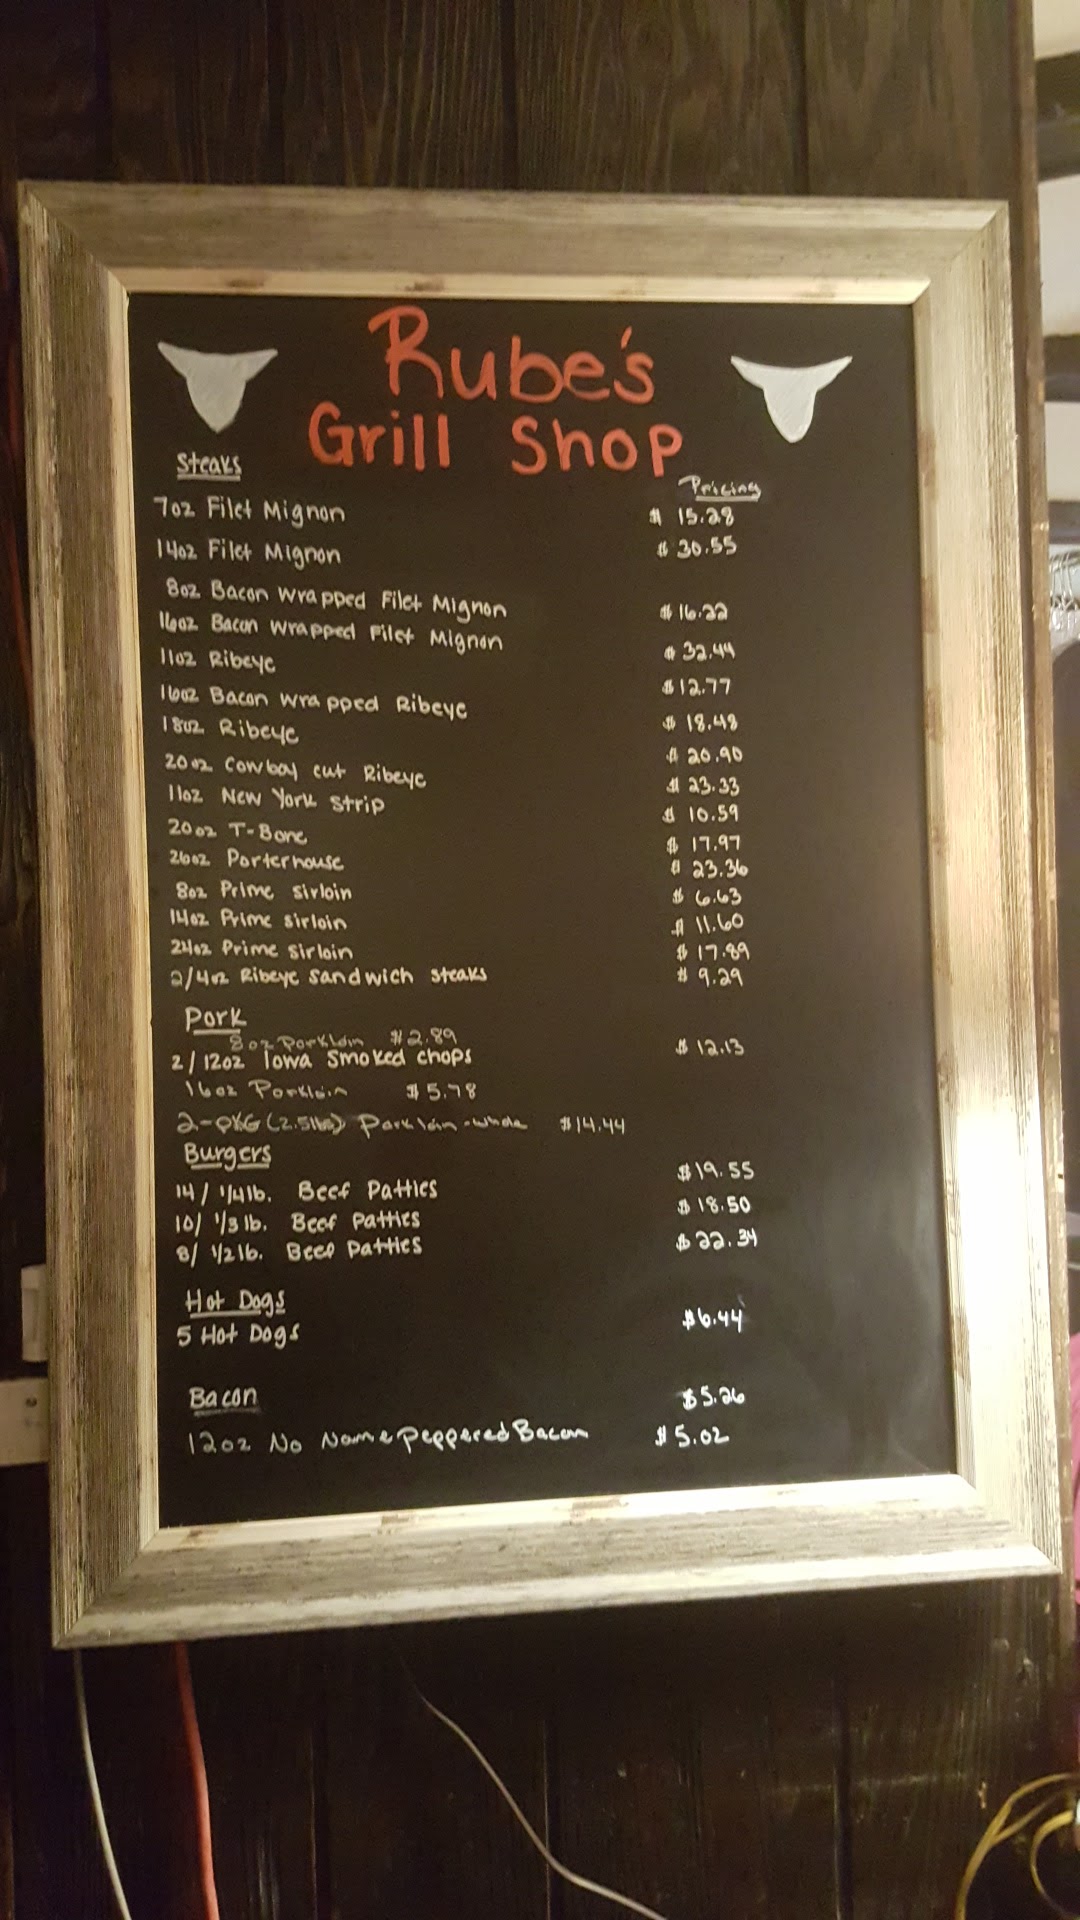 Rube's
Grill Shop
Steaks Pricing
7oz Filet Mignon $ 15.28
14oz Filet Mignon $ 30.55
8oz Bacon Wrapped Filet Mignon $ 16.22
16oz Bacon Wrapped Filet Mignon $ 32.44
11oz Ribeye $ 12.77
16oz Bacon Wrapped Ribeye $ 18.48
18oz Ribeye $ 20.90
20oz Cowboy cut Ribeye $ 23.33
11oz New York Strip $ 10.59
20oz T-Bone $ 17.97
26oz Porterhouse $ 23.36
8oz Prime Sirloin $ 6.63
14oz Prime Sirloin $ 11.60
24oz Prime Sirloin $ 17.89
2/4oz Ribeye Sandwich Steaks $ 9.29
Pork
8oz Porkloin $2.89
2/12oz Iowa Smoked Chops $ 12.13
16oz Porkloin $5.78
2-PKG (2.5lbs) Porkloin-whole $14.44
Burgers
14/ 1/4lb. Beef Patties $19.55
10/ 1/3lb. Beef Patties $ 18.50
8/ 1/2lb. Beef Patties $ 22.34
Hot Dogs
5 Hot Dogs $6.44
Bacon $5.26
12oz No Name Peppered Bacon $5.02